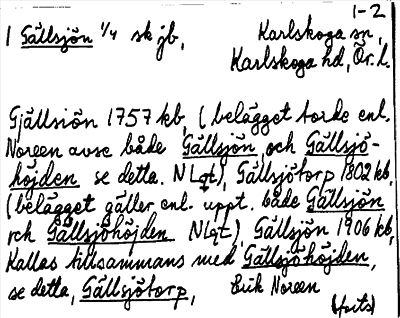 1-2
1 Gällsjön 1/4 sk jb, Karlskoga sn,
Karlskoga hd, Ör. l.
Gjällsiön 1757 kb, (belägget torde enl.
Noreen avse både Gällsjön och Gällsjö-
höjden se detta. NLqt), Gällsjötorp 1802 kb,
(belägget gäller enl. uppt. både Gällsjön
och Gällsjöhöjden NLqt), Gällsjön 1906 kb,
Kallas tillsammans med Gällsjöhöjden,
se detta, Gällsjötorp, Erik Noreen
(forts)